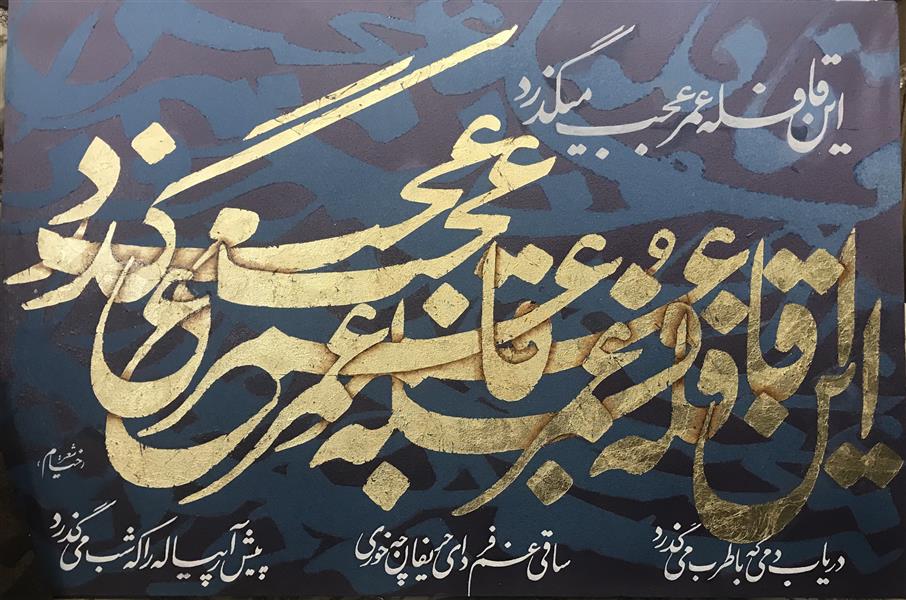 این قافله عمر عجب میگذرد
این قافله عمر عجب میگذرد
شعر خیام
دریاب دمی که با طرب می گذرد
ساقی غم فردای حریفان چه خوری
پیش آر پیاله را که شب می گذرد